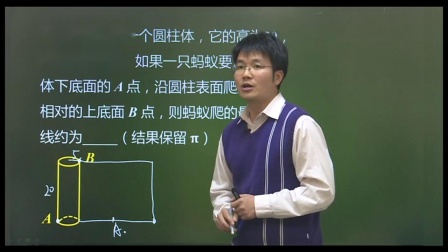 一个圆柱体，它的高为
如果一只蚂蚁要
体下底面的 A 点，沿圆柱表面爬
相对的上底面 B 点，则蚂蚁爬的
线约为____（结果保留 π）
5
B
20
A
A